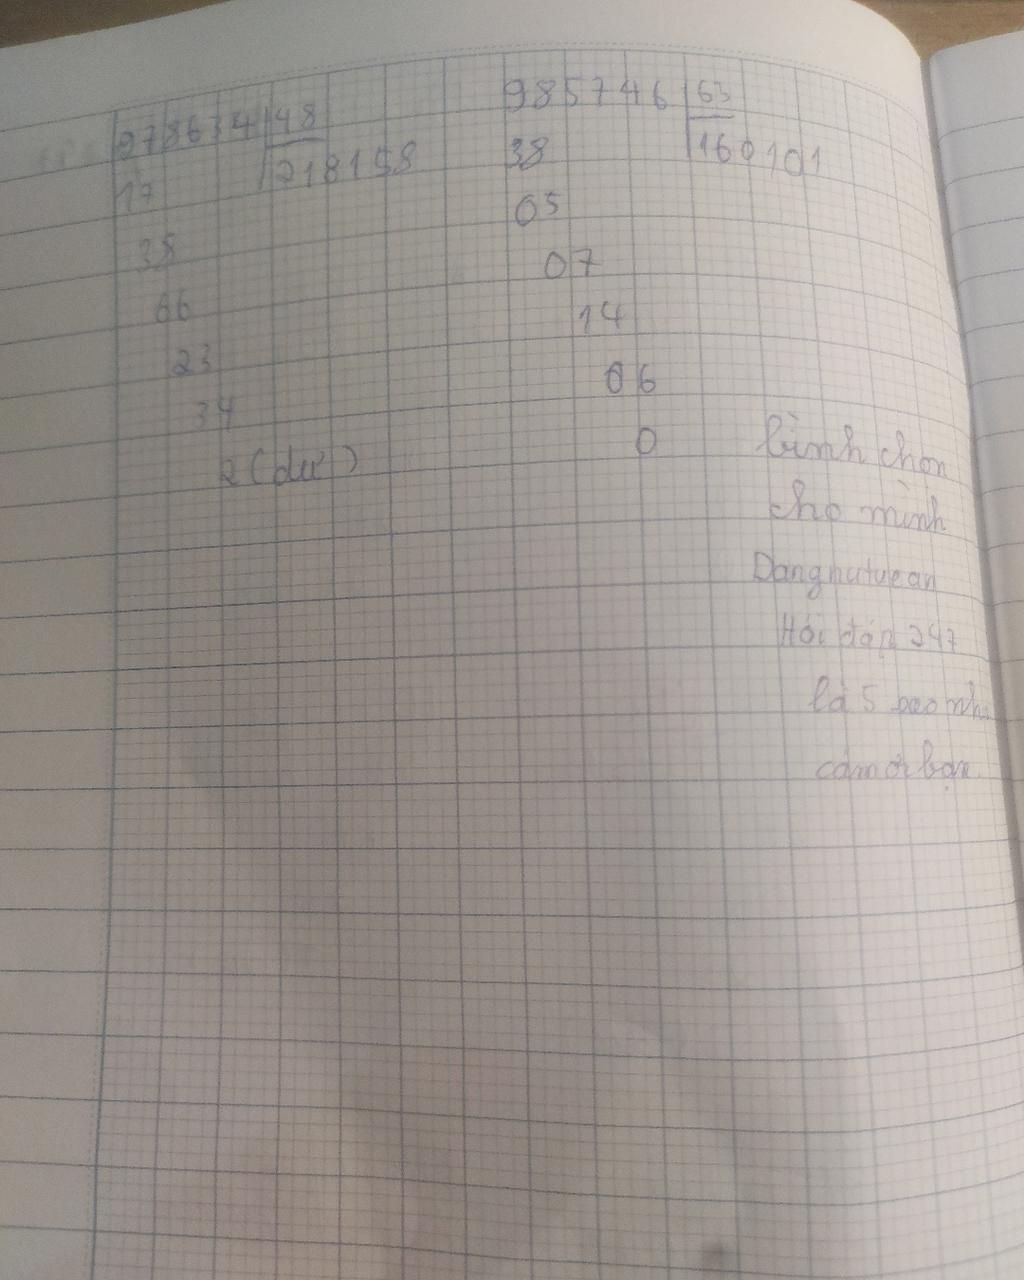 978634 48
17 218158
38
66
23
34
2 (dư)
985746 63
38 160101
05
07
14
06
0
bình chọn
cho mình
Hỏi đáp 247
là 5 sao nh
cảm ơn bạn